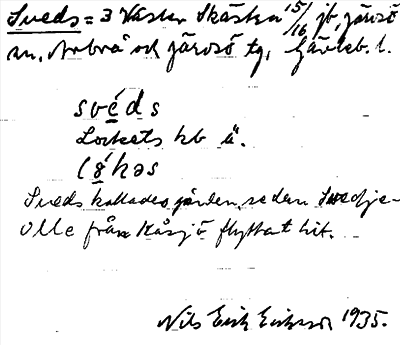 Sveds = 3 Väster Skästra 15/16 jb, järvsö
sn, Arbrå och järvsö tg, Gävleb. l.
svéds
Lockets hb ä.
Sveds kallades gården, sedan Svedje-
Olle från Kåsjö flyttat hit.
Nils Erik Eriksson 1935.